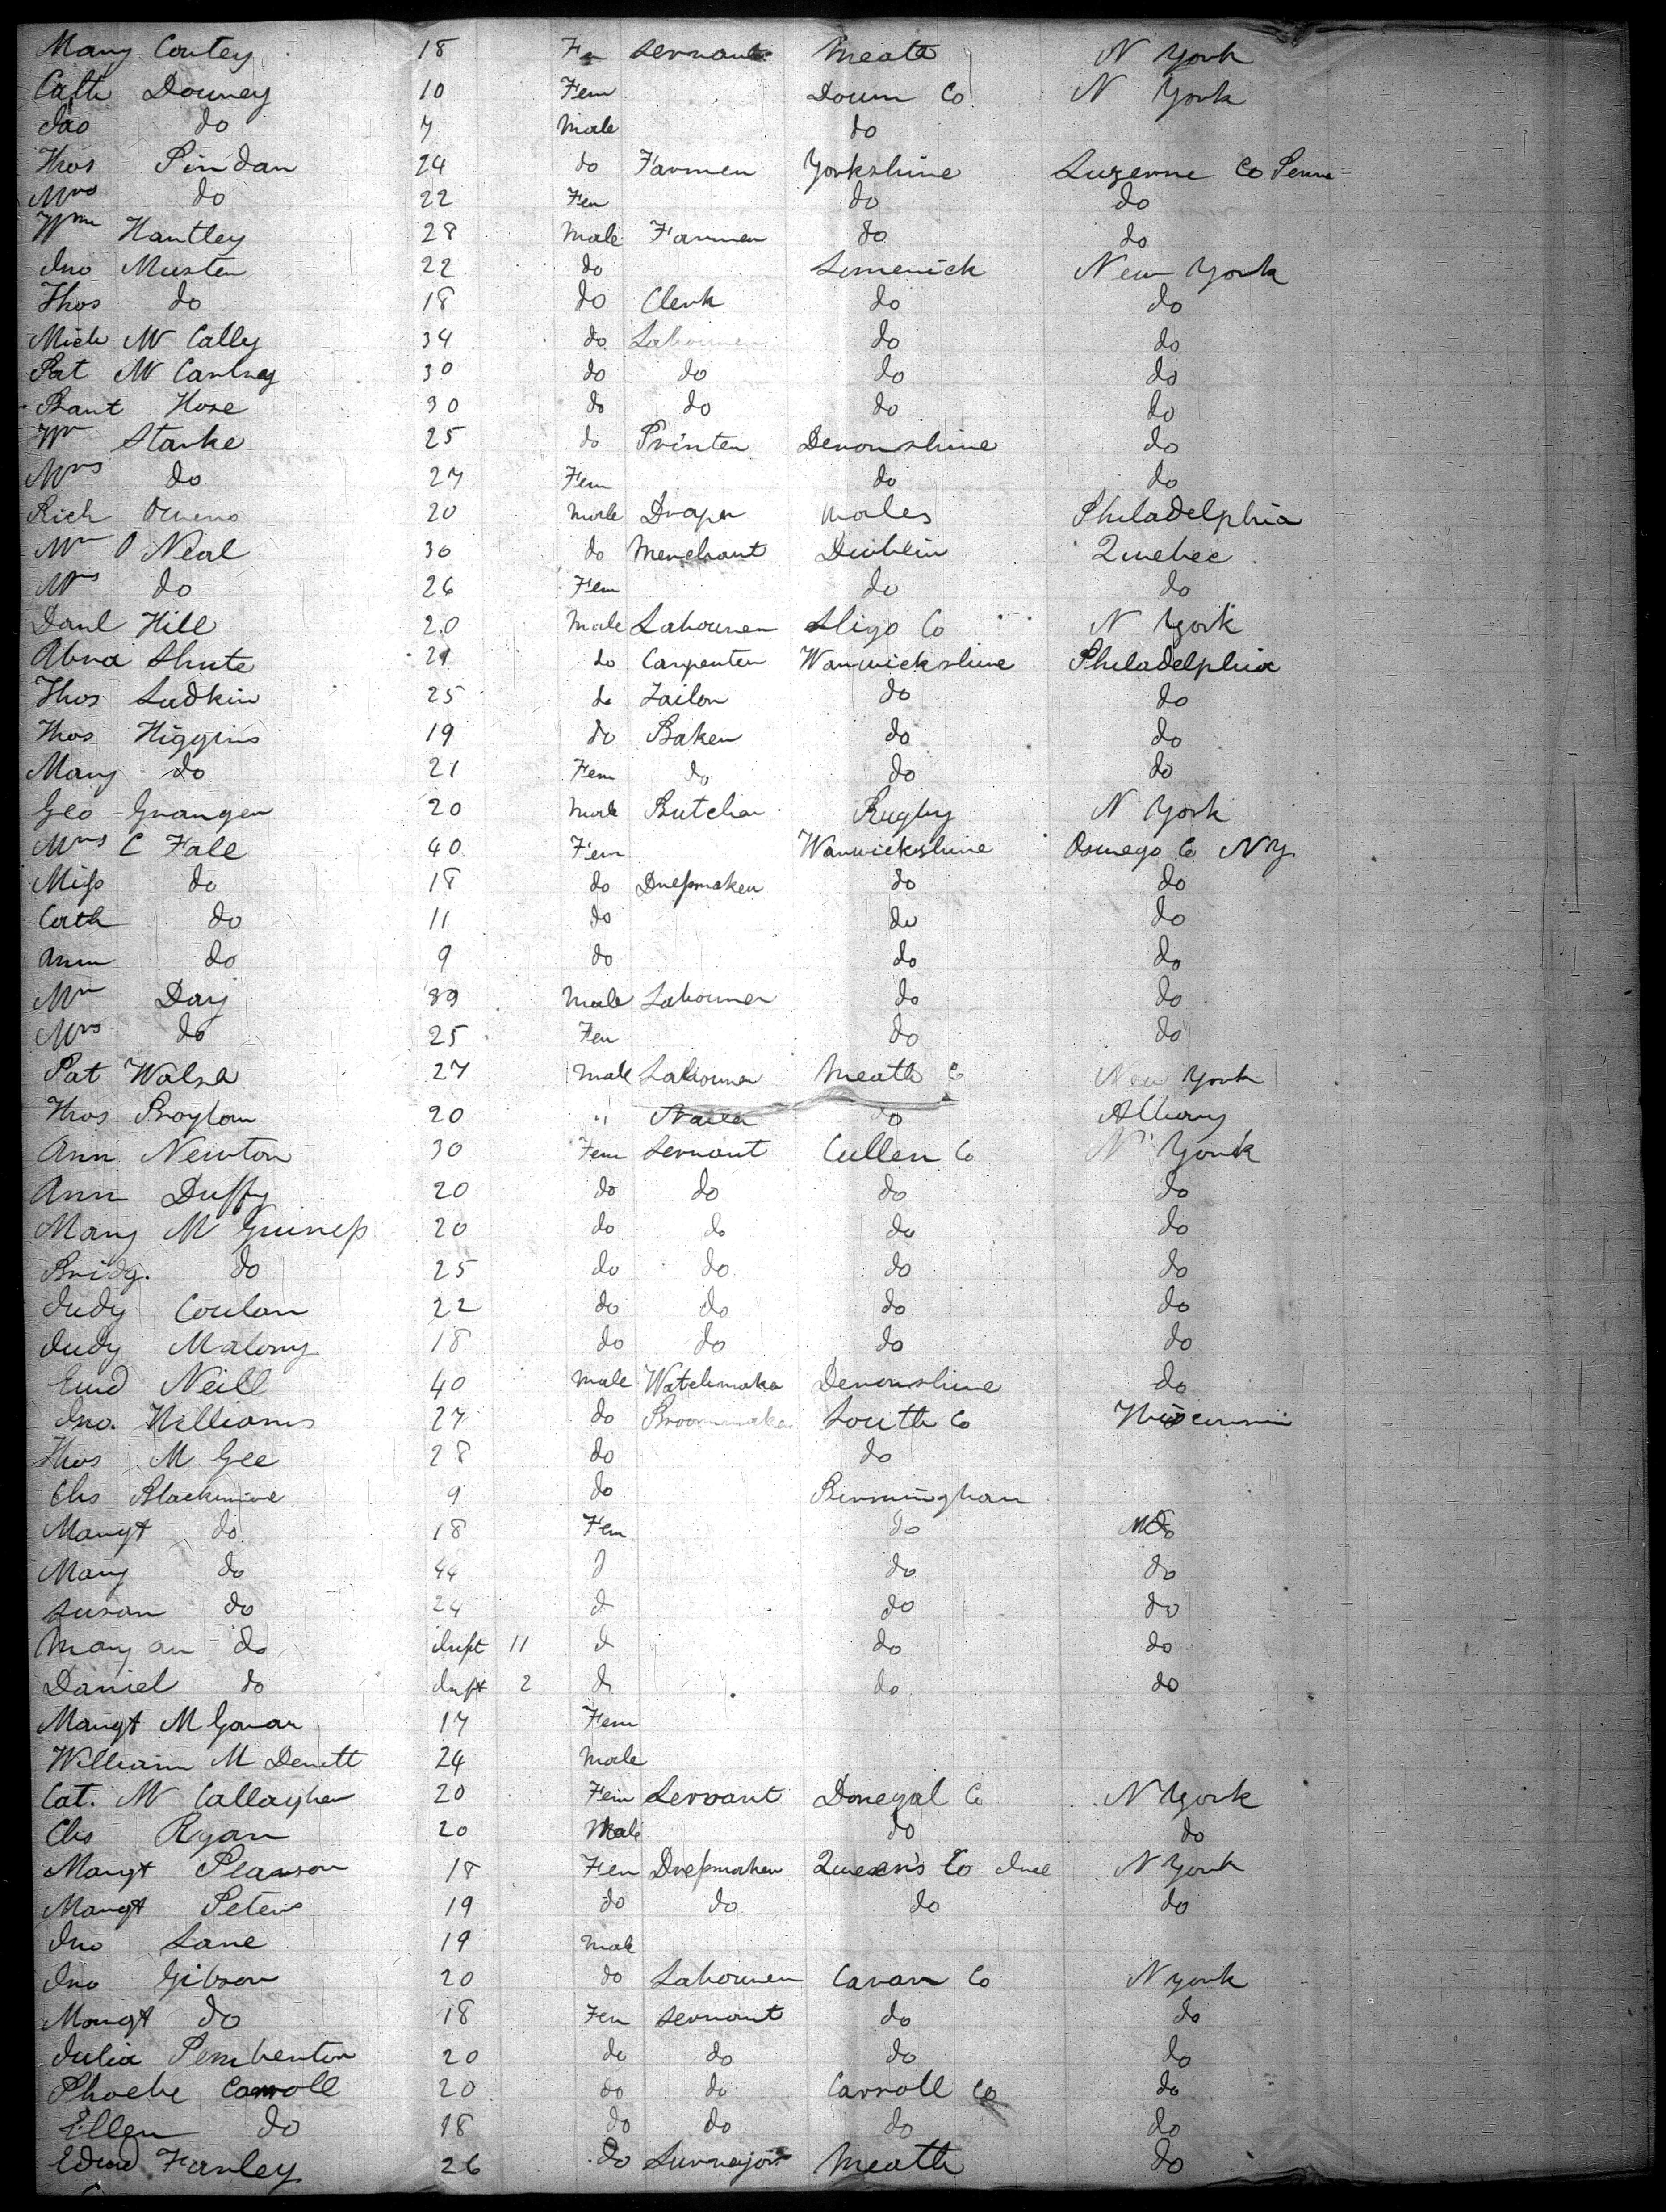 Mary Contey 18 Fem Servant Meath N York
Cath Downey 10 Fem Down Co N York
Jas do 7 Male do
Thos Pindar 24 do Farmer Yorkshire Luzerne Co Penna
Mrs do 22 Fem do do
Wm Hartley 28 Male Farmer do do
Jno Muster 22 do Limerick New York
Thos do 18 do Clerk do do
Mich Mc Cally 34 do Labourer do do
Pat Mc Cartney 30 do do do do
Bart Hose 30 do do do do
Wm Starke 25 do Printer Devonshire do
Mrs do 27 Fem do do
Rich Owens 20 Male Draper Wales Philadelphia
Mr O Neal 30 do Merchant Dublin Quebec
Mrs do 26 Fem do do
Danl Hill 20 Male Labourer Sligo Co N York
Abra Shute 21 do Carpenter Warwickshire Philadelphia
Thos Ludkin 25 do Tailor do do
Thos Higgins 19 do Baker do do
Mary do 21 Fem do do do
Geo Granger 20 Male Butcher Rugby N York
Mrs C Fale 40 Fem Warwickshire Oswego Co N Y
Miss do 18 do Dressmaker do do
Cath do 11 do do do
do 9 do do do
Mr Day 39 Male Labourer do do
Mrs do 25 Fem do do
Pat Walsh 27 Male Labourer Meath Co New York
Thos Boylan 20 " Nailer do Albany
Ann Newton 30 Fem Servant Cullen Co N York
Ann Duffy 20 do do do do
Mary M Guiness 20 do do do do
Bridg. do 25 do do do do
Judy Conlan 22 do do do do
Judy Malony 18 do do do do
Ewd Neill 40 Male Watchmaker Devonshire do
Jno. Williams 27 do Broommaker Louth Co Wisconsin
Thos M Gee 28 do do
Chs Blackmore 9 do Birmingham
Margt do 18 Fem do do
Mary do 44 d do do
Susan do 24 d do do
Mary an do Inft 11 d do do
Daniel do Inft 2 d do do
Margt M Gavan 17 Fem
William M Dermott 24 Male
Cat. Mc Callaghen 20 Fem Servant Donegal Co N York
Chs Ryan 20 Male do do
Margt Pearson 18 Fem Dressmaker Queen's Co Irel N York
Margt Peters 19 do do do do
Jno Lane 19 Male
Jno Gibson 20 do Labourer Cavan Co N York
Margt do 18 Fem Servant do do
Julia Pemberton 20 do do do do
Phoebe Carroll 20 do do Carroll Co do
Ellen do 18 do do do do
Edwd Farley 26 do Meath do